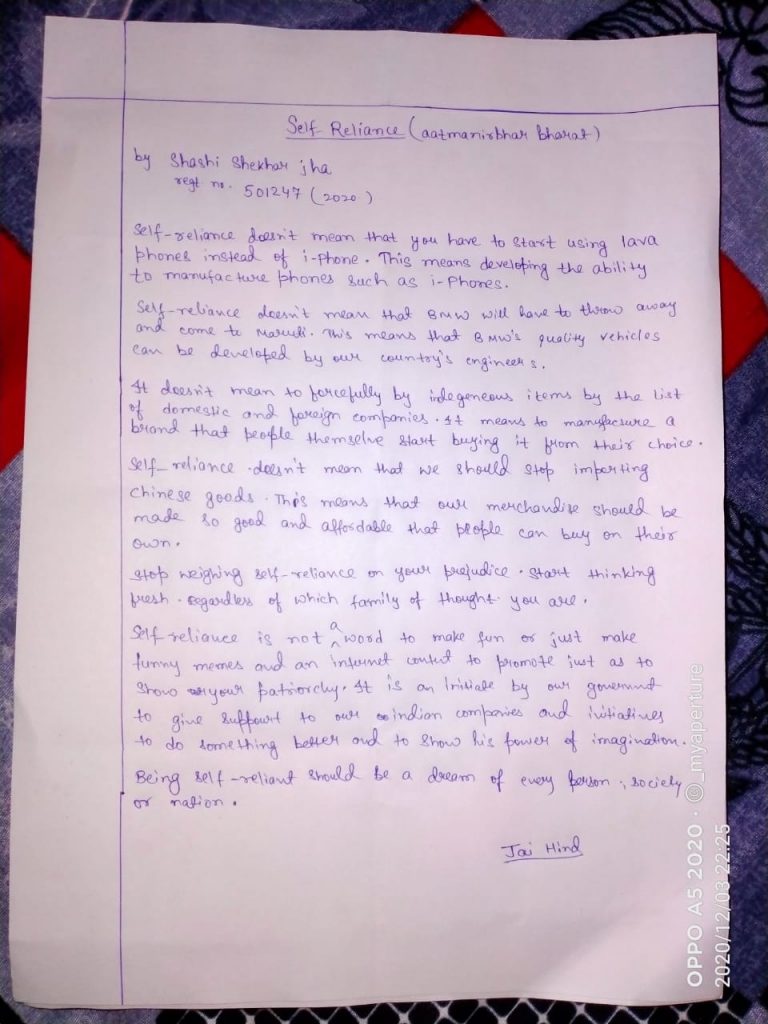 Self Reliance (aatmanirbhar bharat)
by Shashi Shekhar jha
regt no. 501247 (2020)
Self-reliance doesn't mean that you have to start using lava
phones instead of i-phone. This means developing the ability
to manufacture phones such as i-Phones.
Self-reliance doesn't mean that BMW will have to throw away
and come to Maruti. This means that BMW's quality vehicles
can be developed by our country's engineers.
It doesn't mean to forcefully by indegeneous items by the list
of domestic and foreign companies. It means to manufacture a
brand that people themselve start buying it from their choice.
Self-reliance doesn't mean that we should stop importing
Chinese goods. This means that our merchandise should be
made so good and affordable that people can buy on their
own.
Stop weighing self-reliance on your prejudice. Start thinking
fresh. regardless of which family of thought you are.
Self-reliance is not a word to make fun or just make
funny memes and an internet contet to promote just as to
show your patriorchy. It is an initiate by our governmt
to give suppourt to our indian companies and initiatives
to do something better and to show his power of imagination.
Being self-reliant should be a dream of every person, society
or nation.
Jai Hind
OPPO A5 2020 · ©_myaperture
2020/12/03 22:25